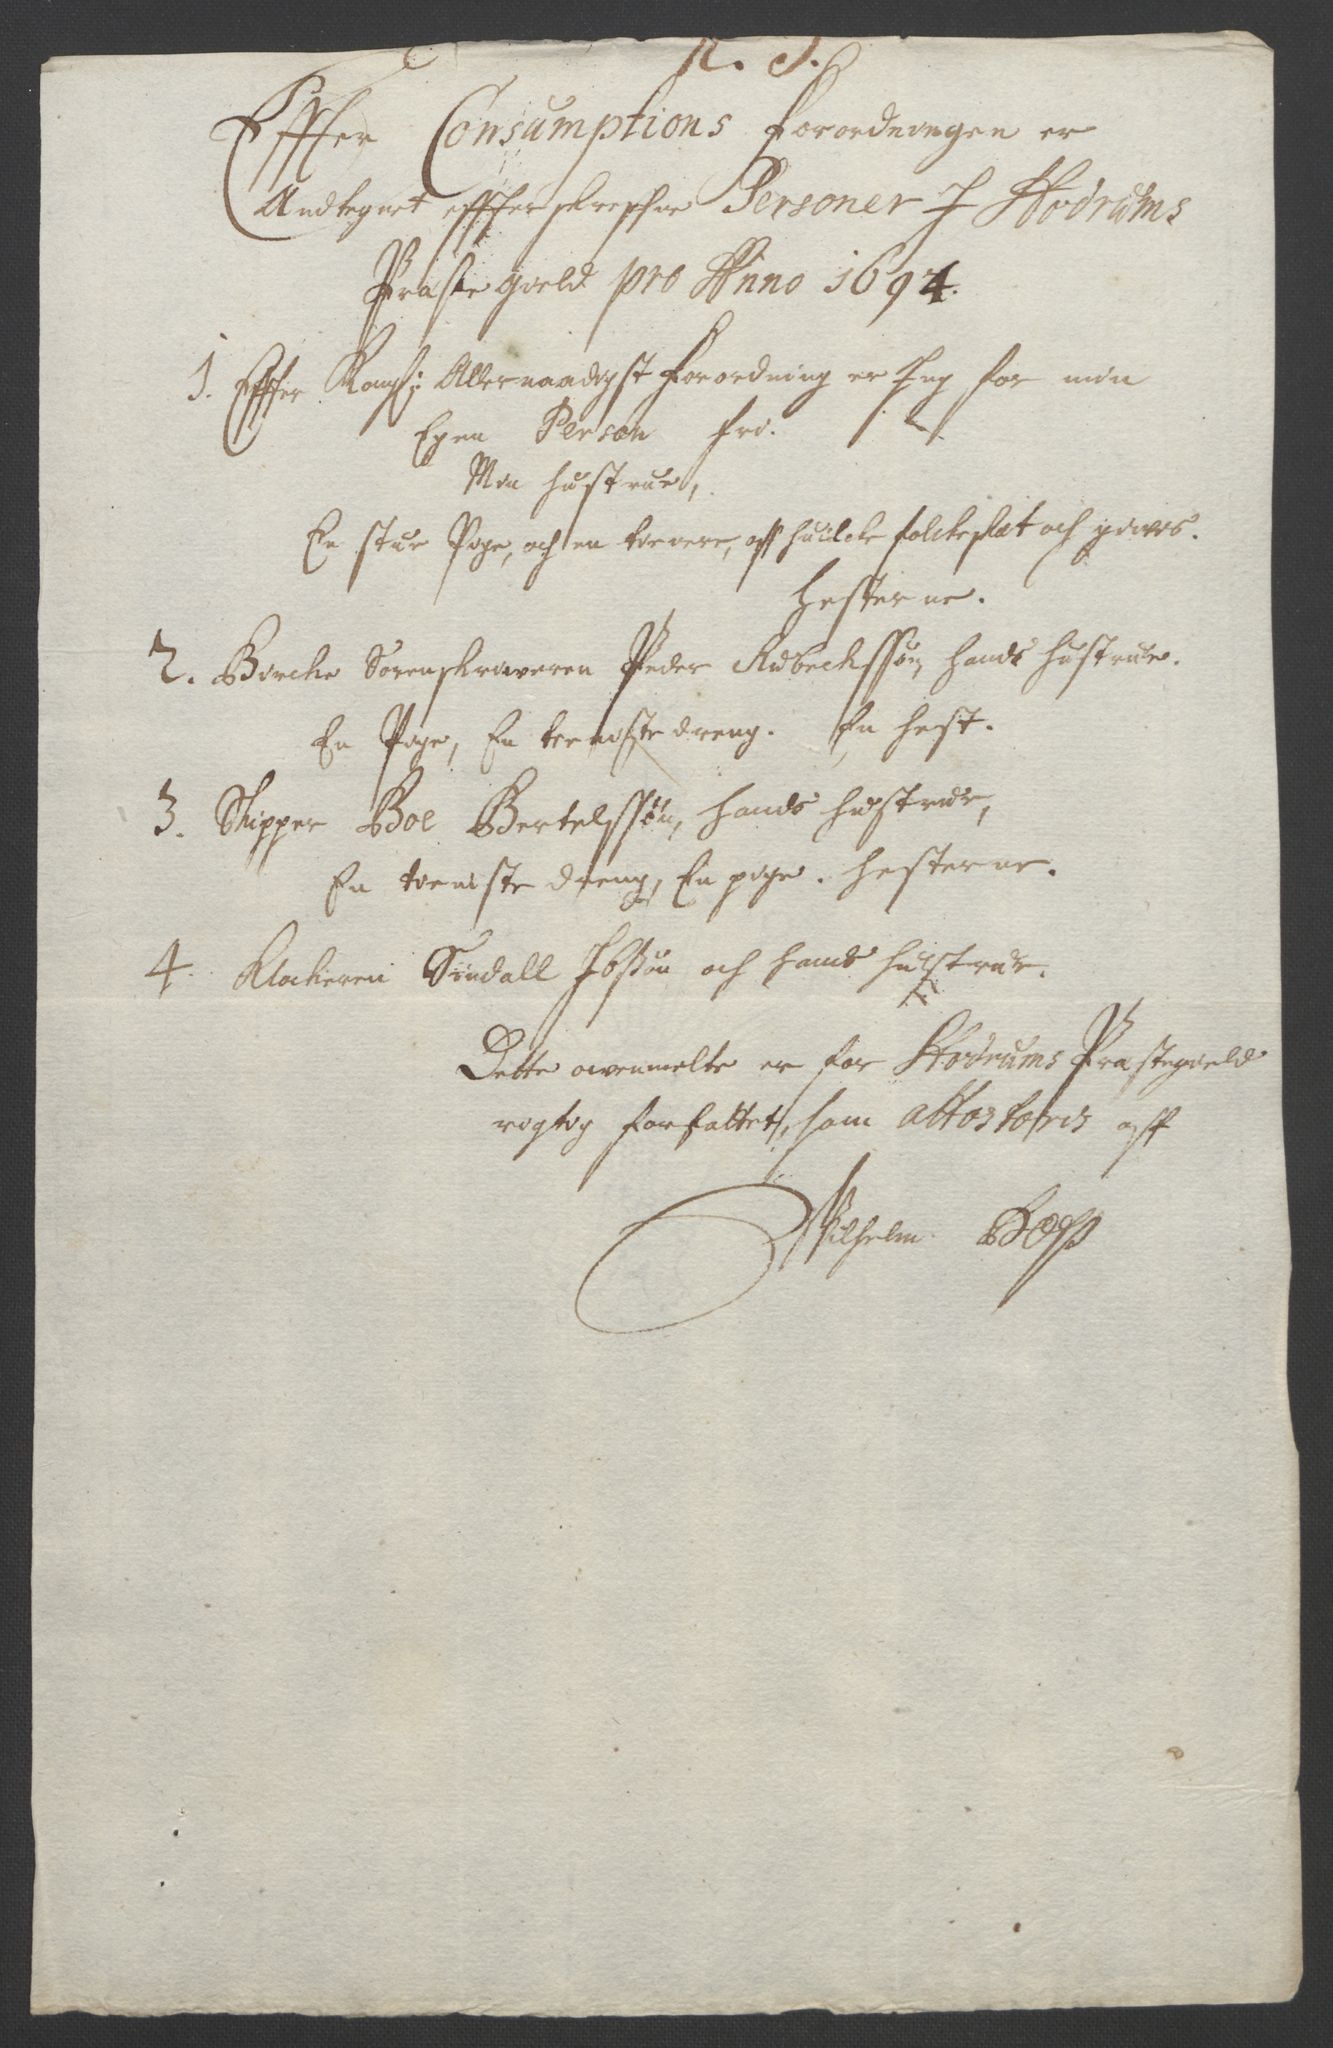 N. J.
Effter Consumptions forordningen er
Andtegnet effterskrefne Personer J Hedrums
Præste gield pro Anno 1694.
1. Effter Kongl: Allernaadigst forordning er Jeg for min
Egen Person fri.
Min hustrue,
En stue Pige, och en tienere, aff huilcke folckeskat och gives.
hesterne.
2. Bircke Sorenskriveren Peder hands hustrue.
En Pige, En tieniste dreng. En hest.
3. Skipper Boe Bertelssøn, hands hustrue,
En tieniste dreng, En pige. hesterne.
4. Klockeren Sindall Ibssøn och hands hustrue.
Dette ovenmelte er for Hedrums Præstegield
rigtig forfattet, som attesteris aff
Wilhelm